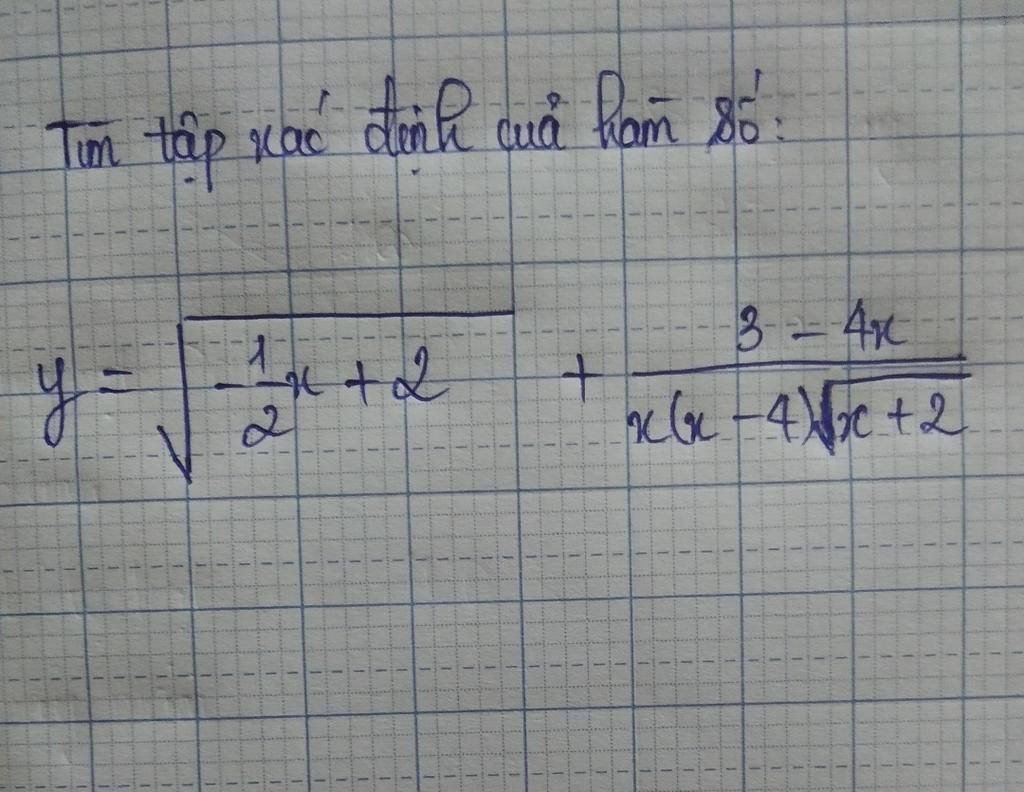 Tìm tập xác định của hàm số:
y = √(-1/2 x + 2) + (3 - 4x)/(x(x - 4)√(x + 2))